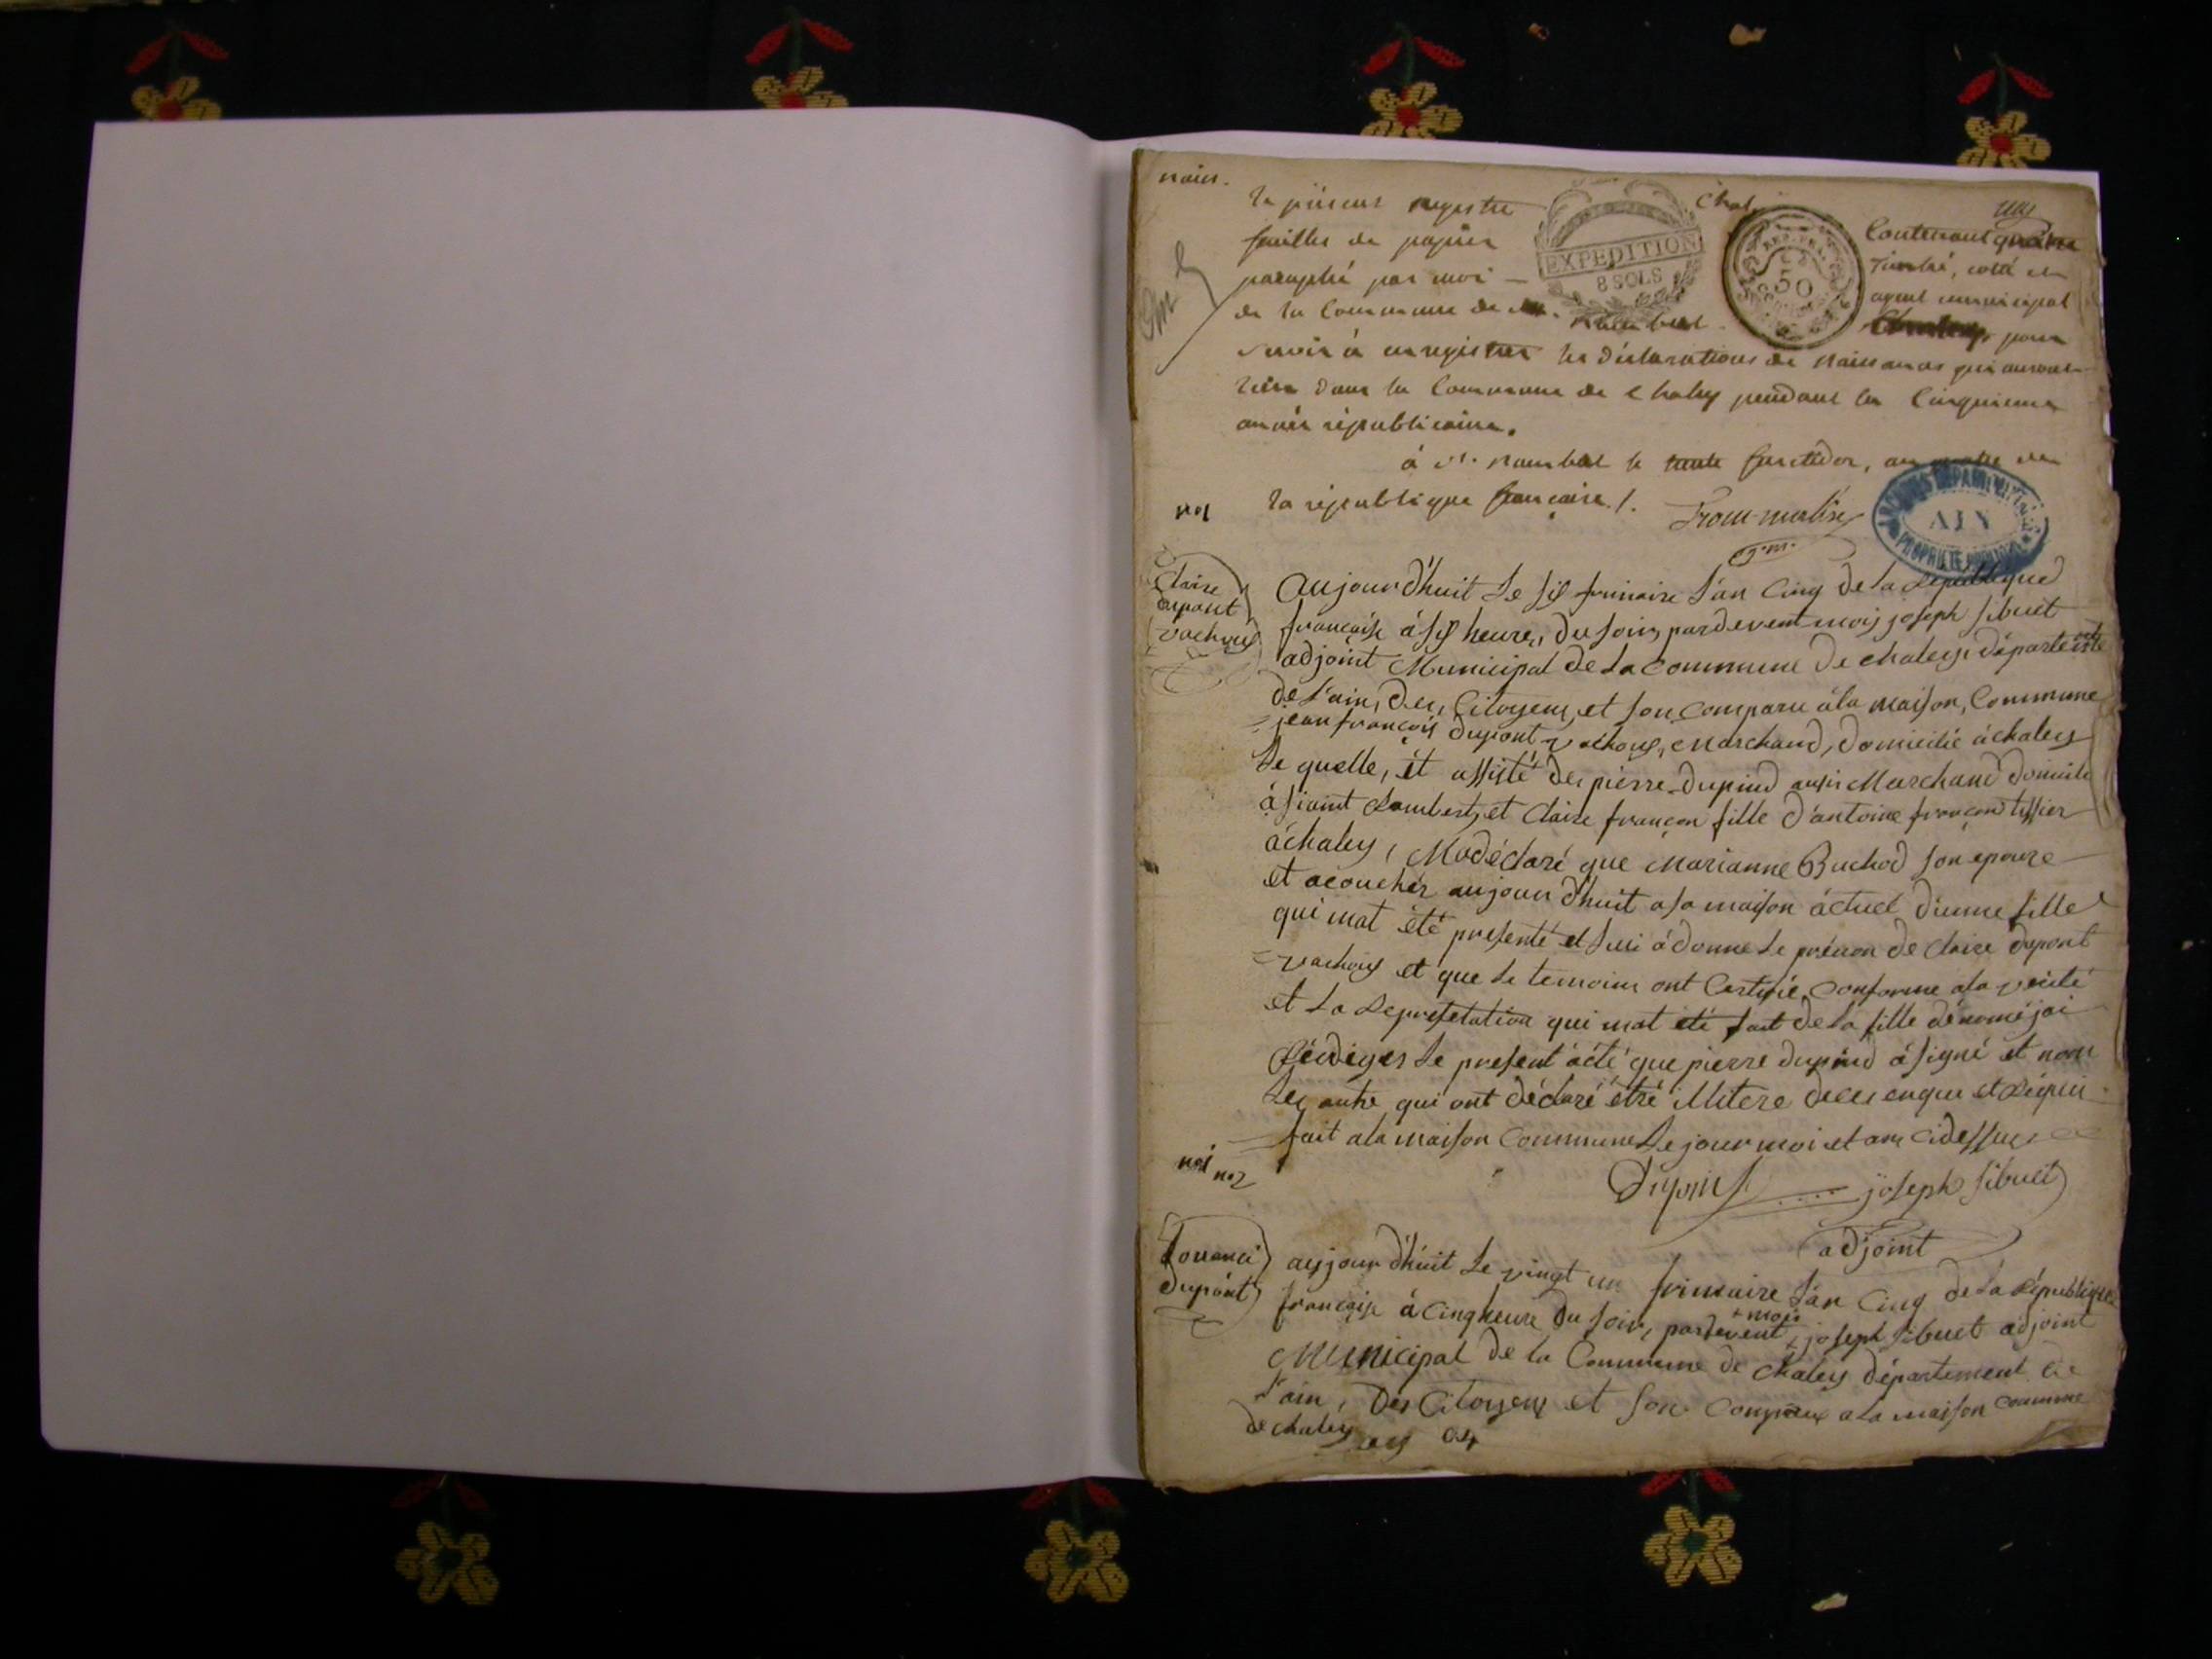 naiss.
Chal
le présent registre Contenant quatre
feuilles de papier Timbré, coté et
paraphé par moi agent municipal
de la Commune de St. Rambert pour
servir à enregistrer les déclarations de naissances qui auront
lieu dans la Commune de Chaley pendant la Cinquieme
année républicaine.
à St. Rambert le trente fructidor, an quatre de
la république française /.
EXPEDITION
8 SOLS
REP. FRA.
50
ARCHIVES DÉPARTEMENTALES
AIN
PROPRIÉTÉ PUBLIQUE
ag. m.
no1
Claire
dupont
vachoux
Aujourd'huit Le six frimaire L'an Cinq de La Republique
français à six heure, du soir, pardevent moij joseph sibuet
adjoint Municipal de La Commune De chaley, départemente
de L'ain, des, Citoyens, et son comparu à la maison, Commune
jean françois Dupont vachoux, Marchand, Domicilié à chaley
Le quelle, èt assisté de, pierre Dupind aussi Marchand Domicile
à siaint Rambert, et Claire françon fille d'antoine françon tissier
à chaley, Ma déclaré que Marianne Buchod son epouze
et acouchér aujourd'huit a sa maison àctuel d'unne fille
qui mat été presenté et Lui à donne Le prénon de Claire dupont
vachoux et que Le temoins ont Certifié Conforme a la verité
et La Represetation qui mat été fait de La fille dénomé jai
Rédiger Le present àcte que pierre dupind à signé et non
Les autre qui ont déclaré être illitere de ces enquis et Réquis
fait a la maison Commune Le jour moi et ans cidessus
Dupind joseph sibuet
adjoint
no1 no2
dupont
aujourd'huit Le vingt un frimaire L'an Cinq de La République
française à Cinq heure Du soir, pardevent + mois joseph sibuet adjoint
Municipal de La Commune de chaley département de
L'ain, Des Citoyens et son Comparux a la maison Commune
de chaley